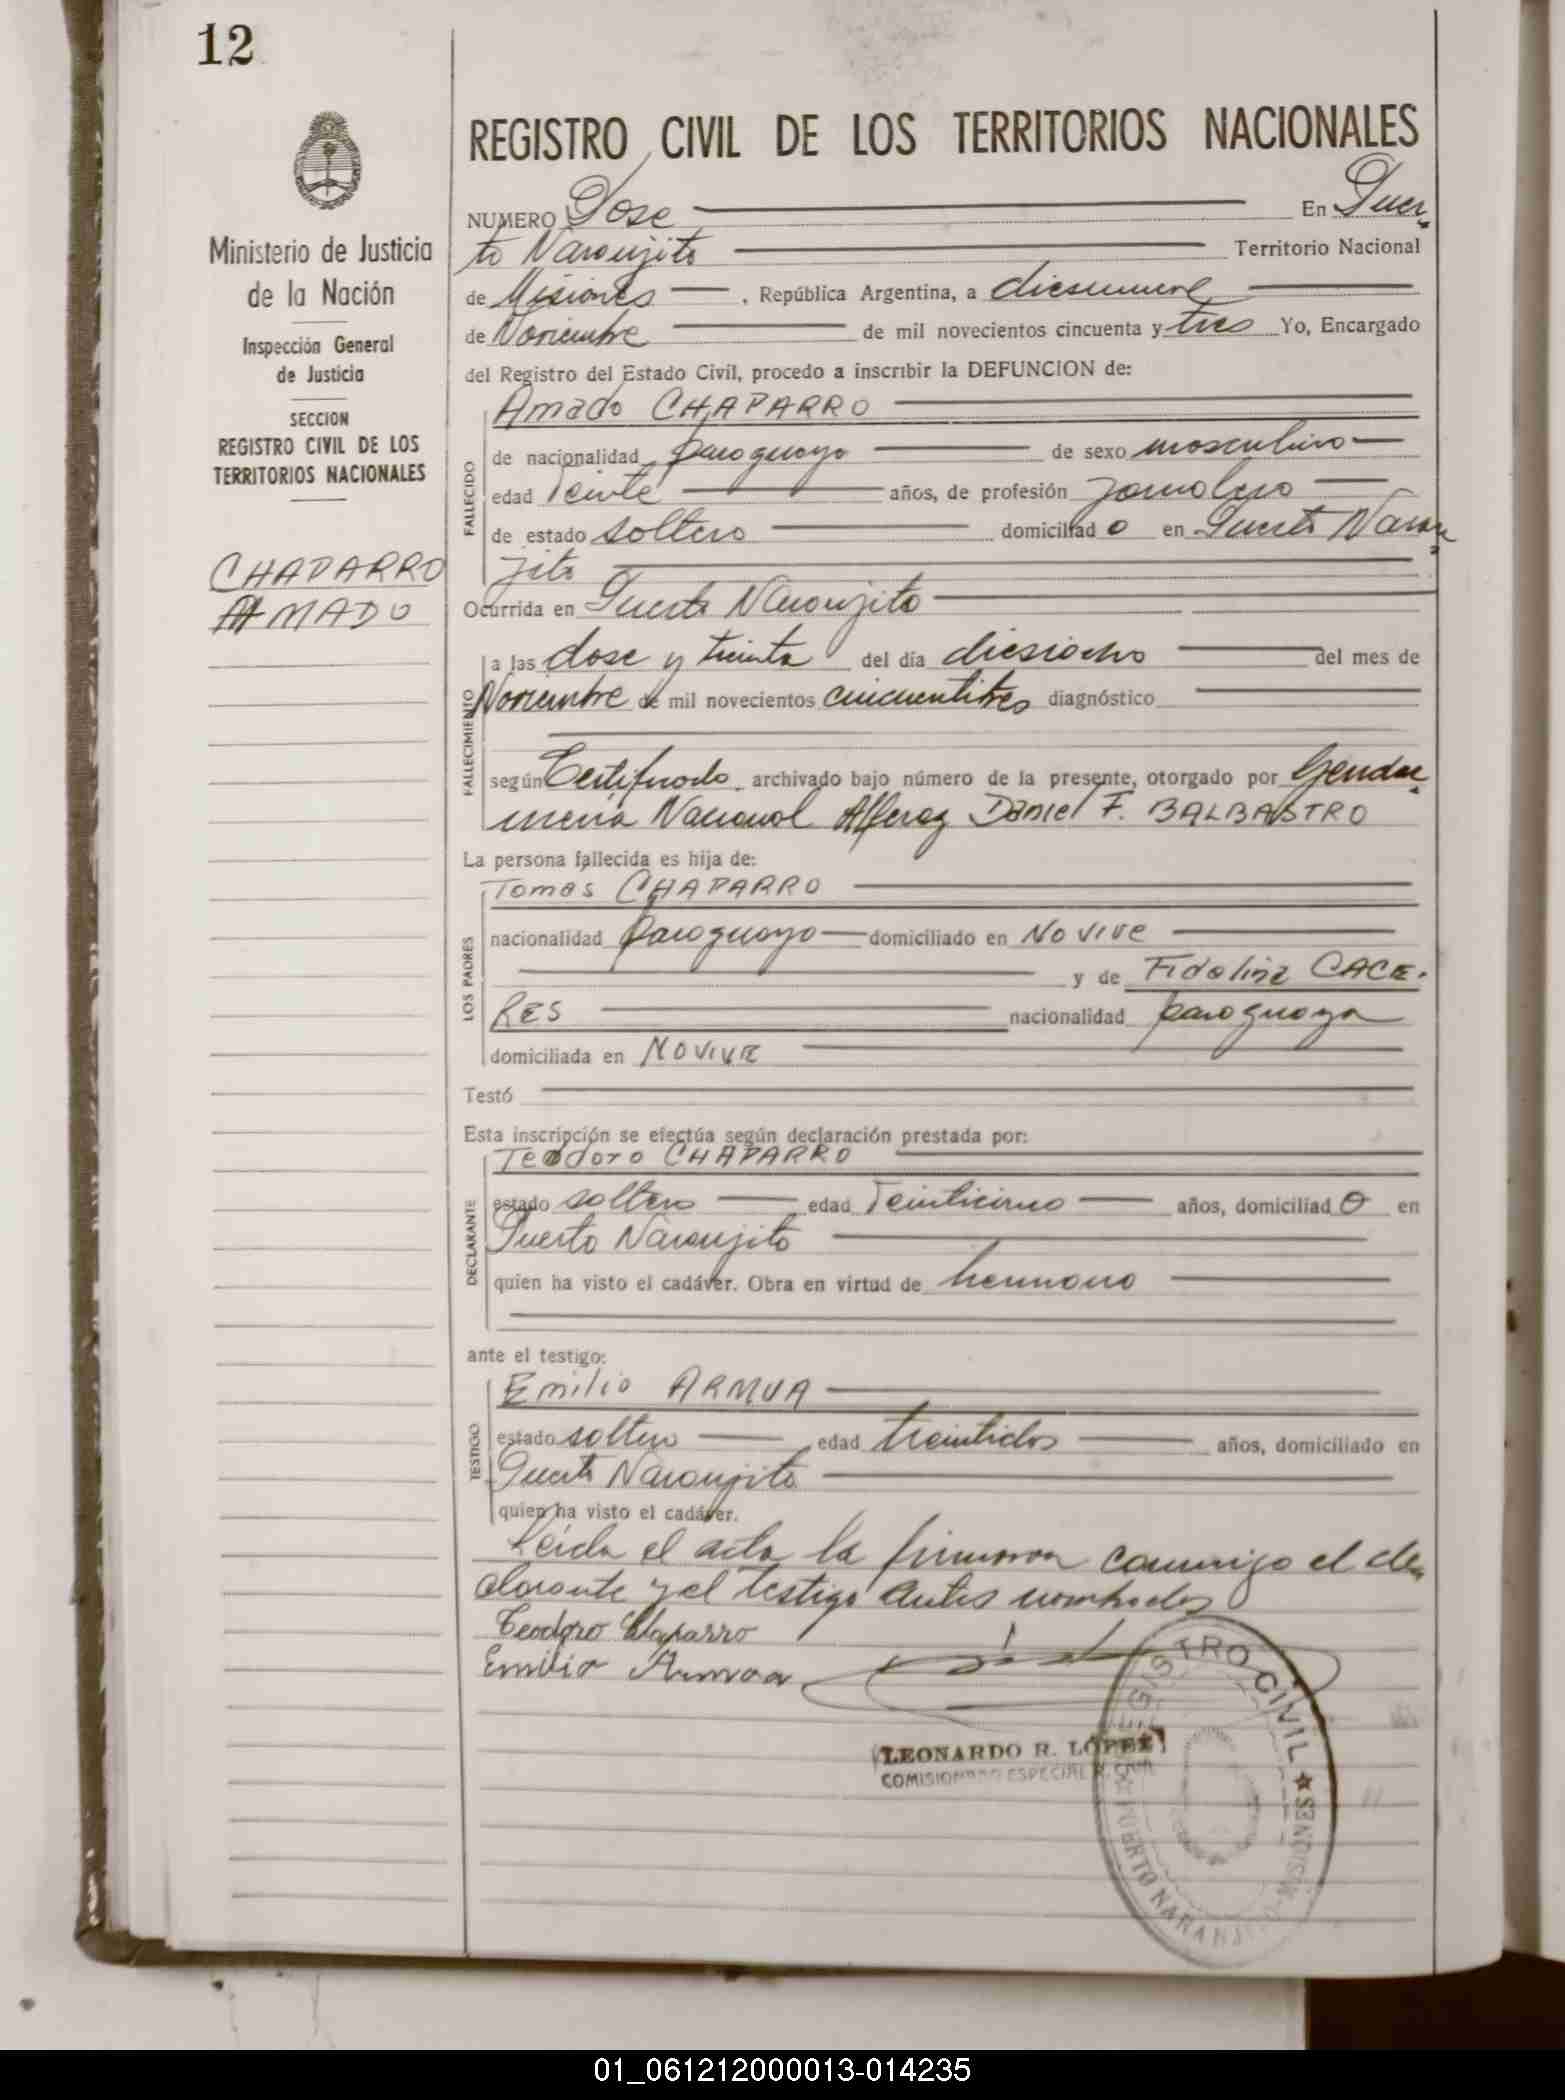 12
REGISTRO CIVIL DE LOS TERRITORIOS NACIONALES
Ministerio de Justicia
de la Nación
Inspección General
de Justicia
SECCION
REGISTRO CIVIL DE LOS
TERRITORIOS NACIONALES
CHAPARRO
AMADO
NUMERO Dose En Puer
to Naranjito Territorio Nacional
de Misiones, República Argentina, a
de Noviembre de mil novecientos cincuenta y tres Yo, Encargado
del Registro del Estado Civil, procedo a inscribir la DEFUNCION de:
FALLECIDO
Amado CHAPARRO
de nacionalidad paraguayo de sexo masculino
edad Veinte años, de profesión Jornalero
de estado soltero domiciliado en Puerto Naran
jito
Ocurrida en Puerto Naranjito
FALLECIMIENTO
a las dose y treinta del día diesiocho del mes de
Noviembre de mil novecientos cincuentitres diagnóstico
según Certificado archivado bajo número de la presente, otorgado por Gendar
mería Nacional Alferez Daniel F. BALBASTRO
La persona fallecida es hija de:
LOS PADRES
Tomas CHAPARRO
nacionalidad paraguayo domiciliado en No vive
y de Fidolina CACE-
RES nacionalidad paraguaya
domiciliada en NO VIVE
Testó
Esta inscripción se efectúa según declaración prestada por:
DECLARANTE
Teodoro CHAPARRO
estado soltero edad Veinticinco años, domiciliado en
Puerto Naranjito
quien ha visto el cadáver. Obra en virtud de hermano
ante el testigo:
TESTIGO
Emilio ARMUA
estado soltero edad treintidos años, domiciliado en
Puerto Naranjito
quien ha visto el cadáver.
Leída el acta la firmaron conmigo el de
clarante y el testigo antes nombrados
Teodoro Chaparro
Emilio Armoa
LEONARDO R. LOPEZ
COMISIONADO ESPECIAL
REGISTRO CIVIL ★ MISIONES
★ PUERTO NARANJITO
01_061212000013-014235